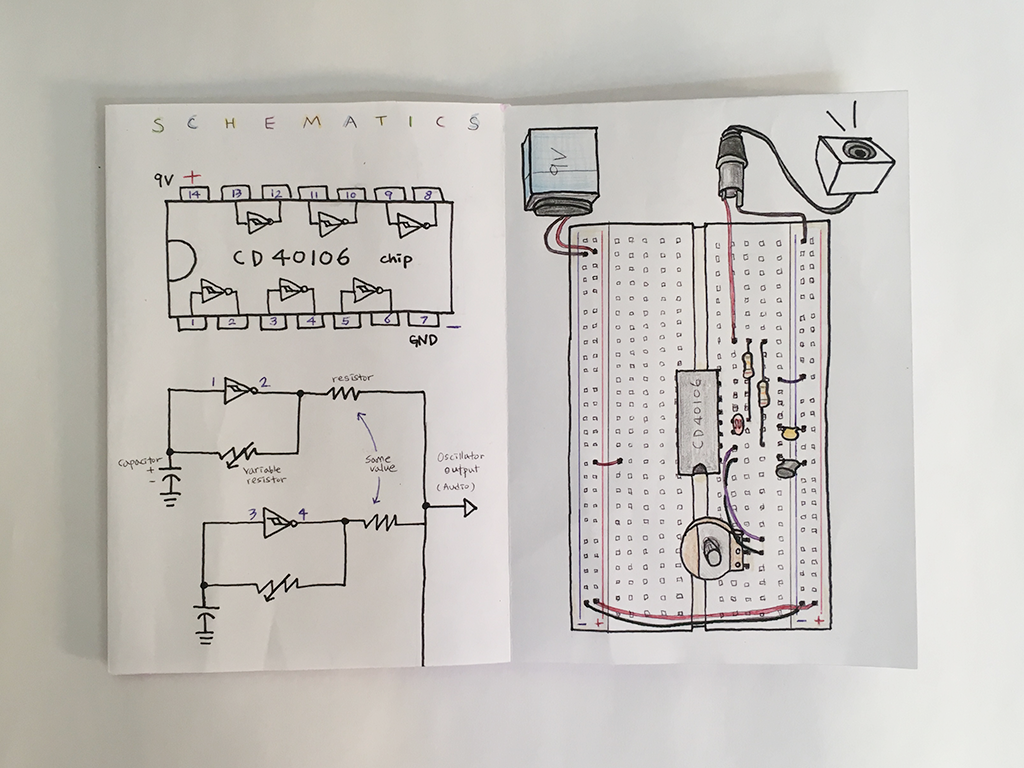 SCHEMATICS
9V +
14 13 12 11 10 9 8
CD 40106 chip
1 2 3 4 5 6 7 -
GND
1 2
resistor
capacitor
+
-
variable
resistor
same
value
Oscillator
output
(Audio)
3 4
9V
CD40106
- +
- +